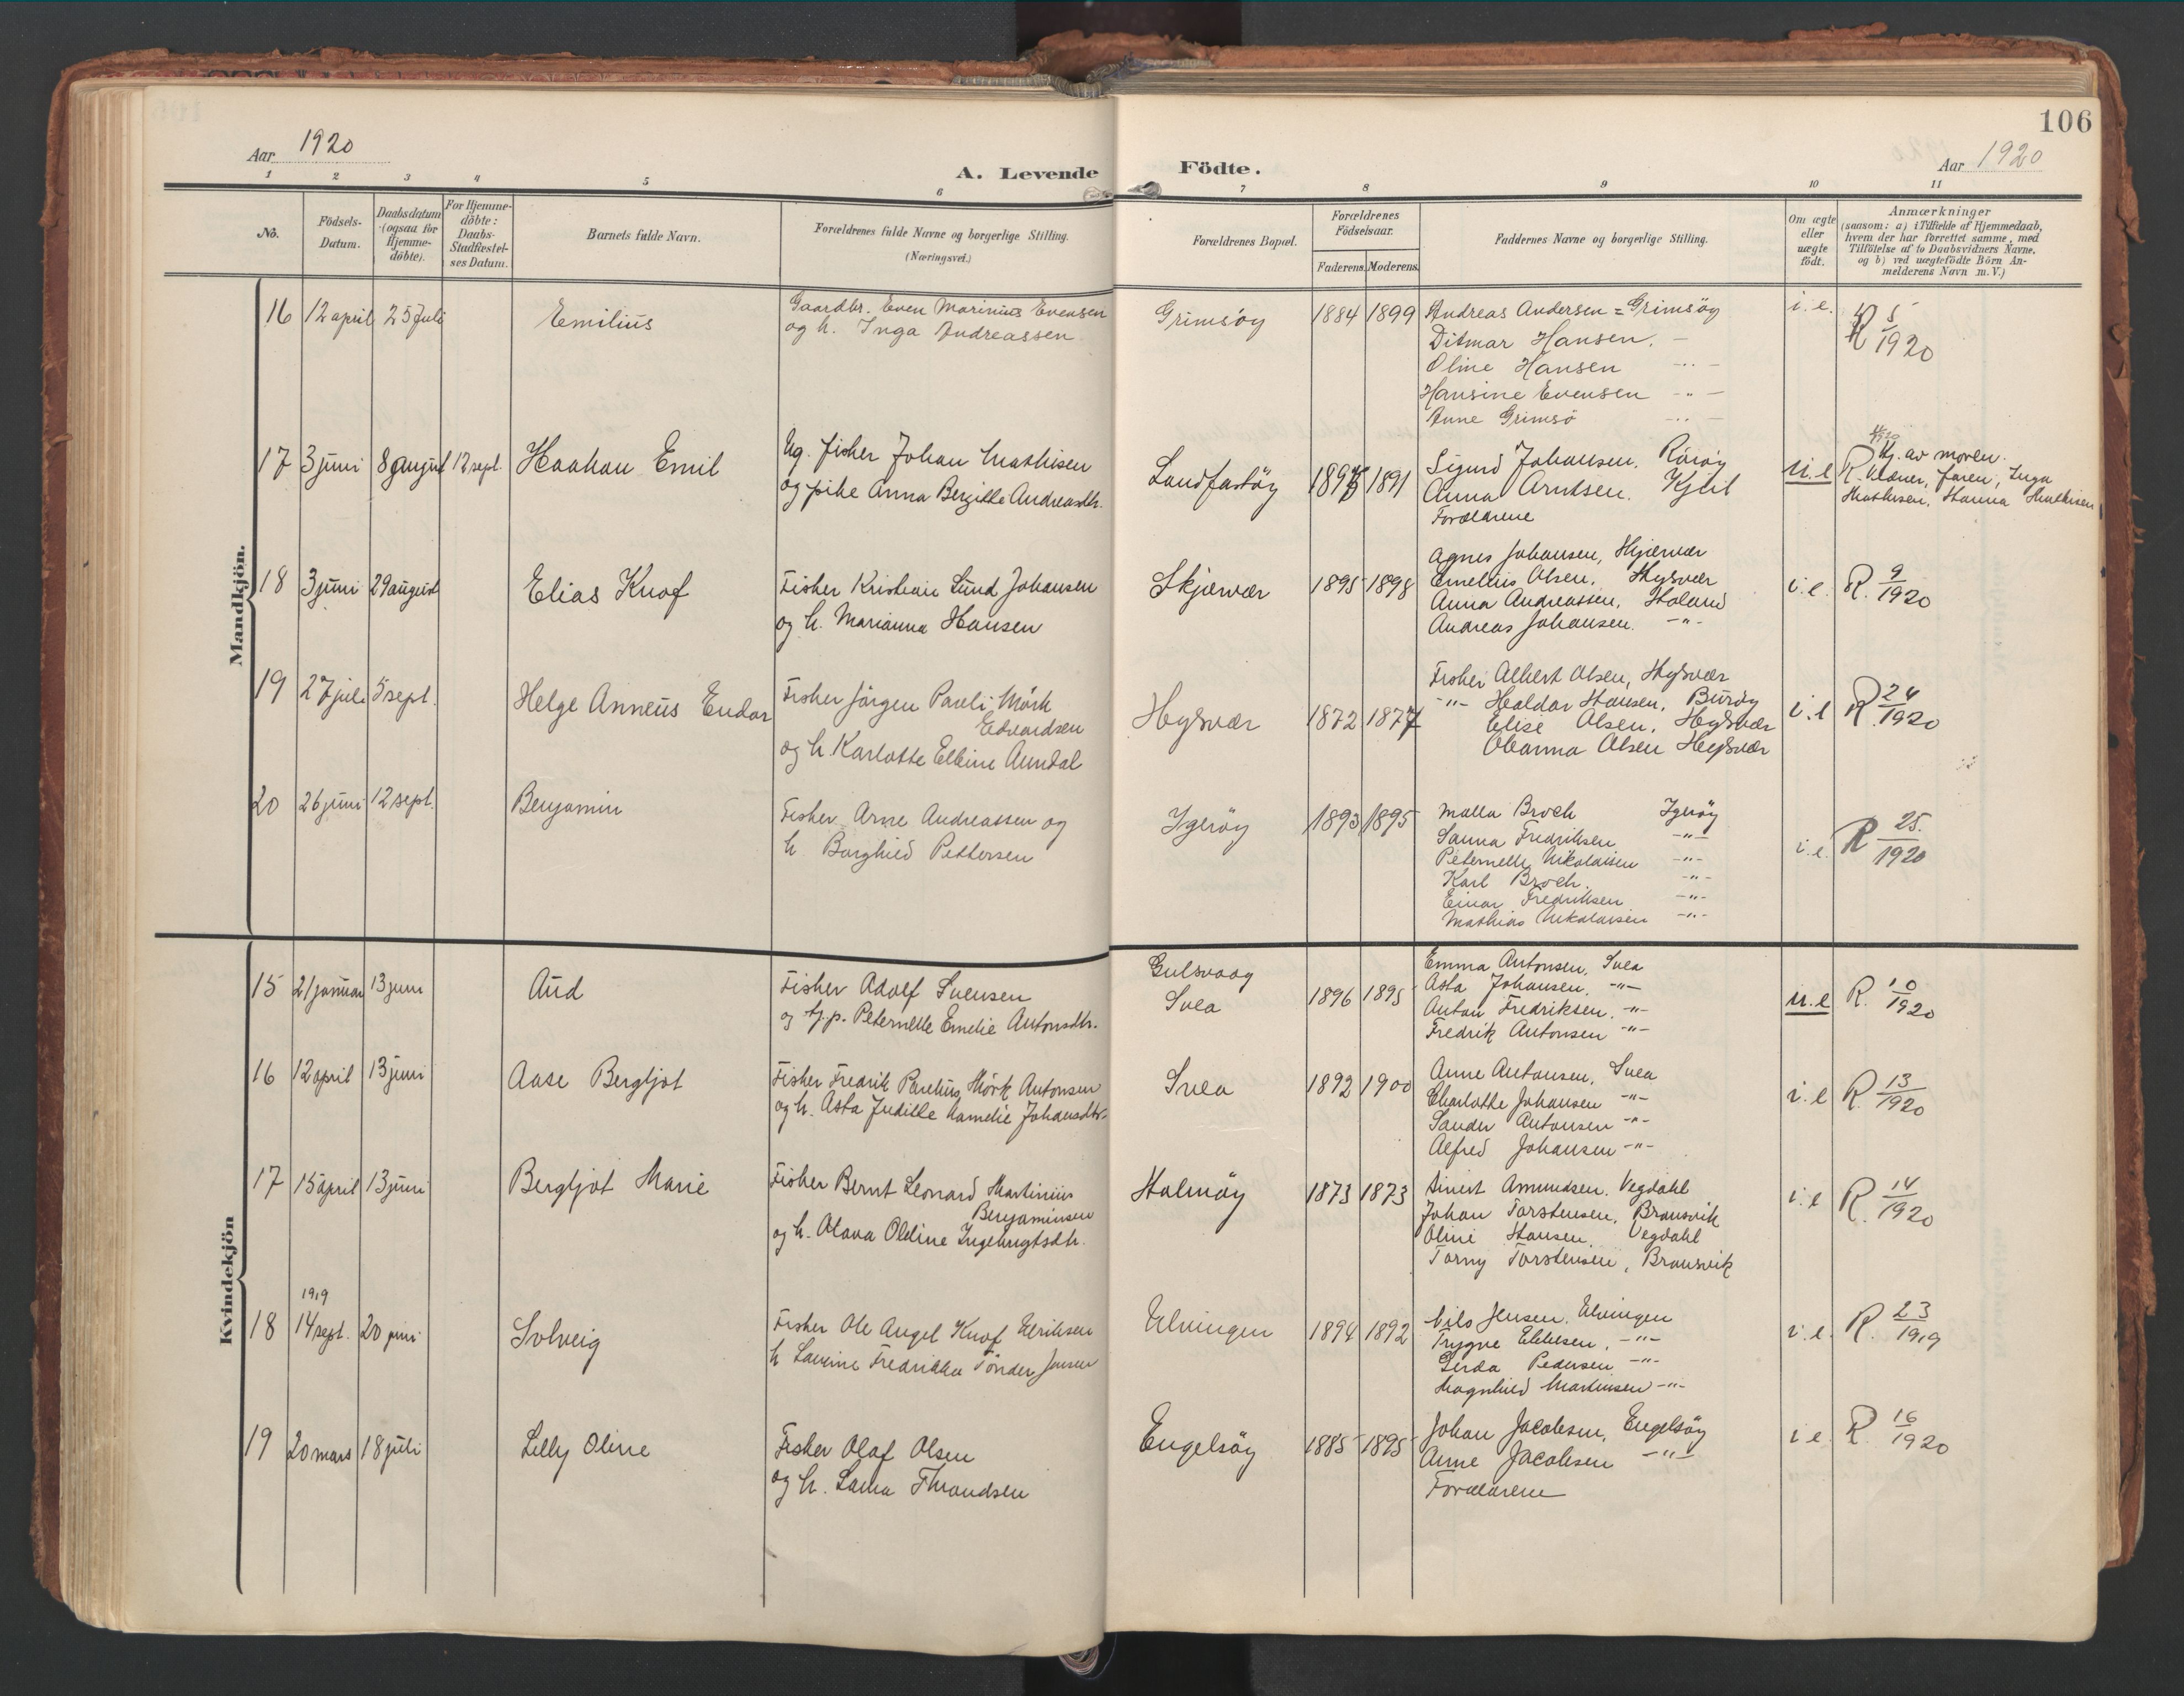 106
Aar 1920
A. Levende Födte.
Aar 1920
1 2 3 4 5 6 7 8 9 10 11
No.
Födsels-
Datum.
Daabsdatum
(ogsaa for
Hjemme-
döbte).
For Hjemme-
döbte:
Daabs-
Stadfæstel-
ses Datum.
Barnets fulde Navn.
Forældrenes fulde Navne og borgerlige Stilling.
(Næringsvei.)
Forældrenes Bopæl.
Forældrenes
Födselsaar.
Faderens. Moderens.
Faddernes Navne og borgerlige Stilling.
Om ægte
eller
uægte
födt.
Anmærkninger
(saasom: a) i Tilfælde af Hjemmedaab,
hvem der har forrettet samme, med
Tilföielse af to Daabsvidners Navne,
og b) ved uægtefödte Börn An-
melderens Navn m. V.)
Mandkjön.
16 12 april 25 Juli
Emilius
Gaardbr. Even Marinius Evensen
og h. Inga Andreassen
Grimsöy
1884 1899
Andreas Andersen = Grimsöy
Ditmar Hansen, -
Oline Hansen -"-
Hansine Evensen -"-
Anne Grimsö -"-
i. e.
R 5/1920
17 3 juni 8 august 12 sept.
Haakon Emil
Ug. fisker Johan Mathisen
og pike Anna Bergitte Andreasdtr.
Landfastöy
1891
Sigurd Johansen, Röröy
Anna Arntsen.
Forældrene
u. e
Hj. av moren.
R. Vidner, faren, Inga
Mathisen, Hanna Mathisen
18 3 juni 29 august
Elias Knof
Fisker Kristian Lund Johansen
og h. Marianna Hansen
Skjærvær
1895 1898
Agnes Johansen, Skjærvær
Emelius Olsen, Hysvær
Anna Andreassen, Holand
Andreas Johansen. -"-
i. e.
R. 9/1920
19 27 juli 5 sept.
Helge Anneus Endor
Fisker Jörgen Pauli Mörk
Edvardsen
og h Karlotte Elbine Aundal
Hysvær
1872 1877
Fisker Albert Olsen, Hysvær
-"- Haldor Hansen, Buröy
Elise Olsen, Hysvær
Oleanna Olsen Hysvær
i. e
R 24/1920
20 26 juni 12 sept.
Benjamin
Fisker Arne Andreassen og
h. Borghild Pettersen
Igeröy
1893 1895
Malla Broch Igeröy
Sanna Fredriksen -"-
Peternelle Nikolaisen -"-
Karl Broch. -"-
Einar Fredriksen -"-
Mathias Nikolaisen -"-
i. e.
R 25./1920
Kvindekjön
15 21 januar 13 juni
Aud
Fisker Adolf Svensen
og tj.p. Peternelle Emelie Antonsdtr.
Gulsvaag
Svea
1896 1895
Emma Antonsen, Svea
Asta Johansen, -"-
Anton Fredriksen, -"-
Fredrik Antonsen -"-
u. e
R. 10/1920
16 12 april 13 juni
Aase Bergljot
Fisker Fredrik Parelius Mörk Antonsen
og h. Asta Juditte Kamelie Johansdtr.
Svea
1892 1900
Anne Antonsen, Svea
Charlotte Johansen -"-
Sander Antonsen -"-
Alfred Johansen -"-
i. e
R. 13/1920
17 15 april 13 juni
Bergljot Marie
Fisker Bernt Leonard Martinius
Benjaminsen
og h. Olava Oldine Ingebrigtsdtr.
Holmöy
1873 1873
Sivert Amundsen. Vegdahl
Johan Torstensen, Bransvik
Oline Hansen, Vegdahl
Torny Torstensen, Bransvik
i. e
R. 14/1920
1919
18 14 sept. 20 juni
Solveig
Fisker Ole Angel Knof Ulriksen
h Lavine Fredrikka Tönder Jensen
Ulvingen
1894 1892
Nils Jensen, Ulvingen
Trygve Ebbesen, -"-
Gerda Pedersen -"-
Magnhild Martinsen -"-
i. e.
R. 23/1919
19 20 mars 18 juli
Lilly Oline
Fisker Olaf Olsen
og h. Laura Throndsen
Engelsöy
1885 1895
Johan Jacobsen, Engelsöy
Anne Jacobsen -"-
Forældrene
i. e.
R. 16/1920